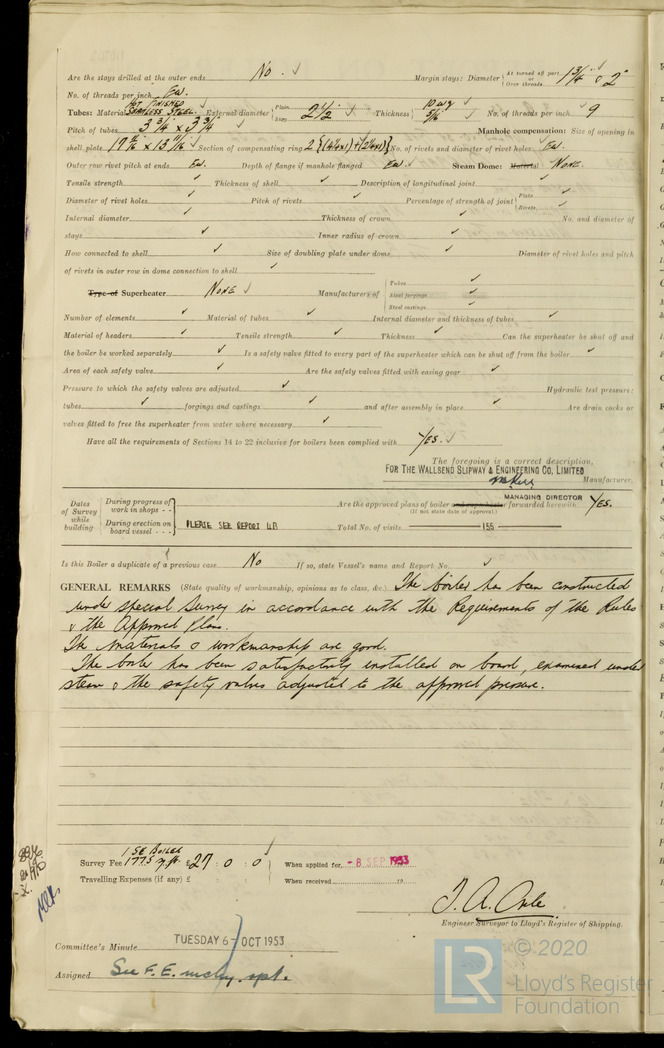 Are the stays drilled at the outer ends No. ✓ Margin stays: Diameter { At turned off part, or Over threads 1 3/4" & 2"
No. of threads per inch
Tubes: Material HOT FINISHED SEAMLESS STEEL External diameter { Plain Stay 2 1/2 ✓ Thickness { 10 WG 5/16 ✓ No. of threads per inch 9
Pitch of tubes 3 3/4 x 3 3/4 Manhole compensation: Size of opening in
shell plate Section of compensating ring No. of rivets and diameter of rivet holes
Outer row rivet pitch at ends Depth of flange if manhole flanged Steam Dome: Material NONE.
Tensile strength ✓ Thickness of shell ✓ Description of longitudinal joint ✓
Diameter of rivet holes ✓ Pitch of rivets ✓ Percentage of strength of joint { Plate Rivets
Internal diameter ✓ Thickness of crown ✓ No. and diameter of
stays ✓ Inner radius of crown ✓
How connected to shell ✓ Size of doubling plate under dome ✓ Diameter of rivet holes and pitch
of rivets in outer row in dome connection to shell ✓
Type of Superheater NONE ✓ Manufacturers of { Tubes ✓
Steel forgings ✓
Steel castings ✓
Number of elements ✓ Material of tubes ✓ Internal diameter and thickness of tubes ✓
Material of headers ✓ Tensile strength ✓ Thickness ✓ Can the superheater be shut off and
the boiler be worked separately ✓ Is a safety valve fitted to every part of the superheater which can be shut off from the boiler ✓
Area of each safety valve ✓ Are the safety valves fitted with easing gear ✓
Pressure to which the safety valves are adjusted ✓ Hydraulic test pressure:
tubes ✓ forgings and castings ✓ and after assembly in place ✓ Are drain cocks or
valves fitted to free the superheater from water where necessary ✓
Have all the requirements of Sections 14 to 22 inclusive for boilers been complied with YES. ✓
The foregoing is a correct description,
FOR THE WALLSEND SLIPWAY & ENGINEERING CO, LIMITED
Manufacturer.
MANAGING DIRECTOR
Dates of Survey while building { During progress of work in shops - - Are the approved plans of boiler and superheater forwarded herewith YES.
(If not state date of approval.)
During erection on board vessel - - - PLEASE SEE REPORT 4B Total No. of visits 155
Is this Boiler a duplicate of a previous case No If so, state Vessel's name and Report No. ✓
GENERAL REMARKS (State quality of workmanship, opinions as to class, &c. The boiler has been constructed
under special survey in accordance with the Requirements of the Rules
& the Approved Plans.
The materials & workmanship are good.
The boiler has been satisfactorily installed on board, examined under
steam & the safety valves adjusted to the approved pressure.
1 SE BOILER
Survey Fee 1775 £27 : 0 : 0 When applied for, -8 SEP 1953
Travelling Expenses (if any) £ : : When received 19
Engineer Surveyor to Lloyd's Register of Shipping.
Committee's Minute TUESDAY 6 - OCT 1953
Assigned See F.E. mchy. rpt.
LR © 2020
Lloyd's Register
Foundation